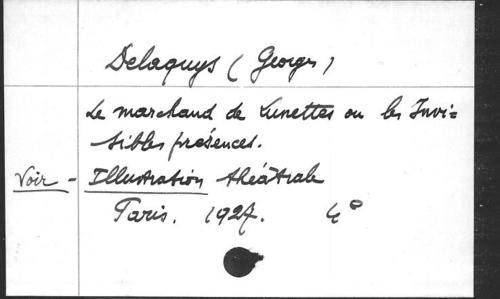 Delaquys (Georges)
Le marchand de Lunettes ou les Invi=
sibles présences.
Voir - Illustration théâtrale
Paris. 1927. 4°